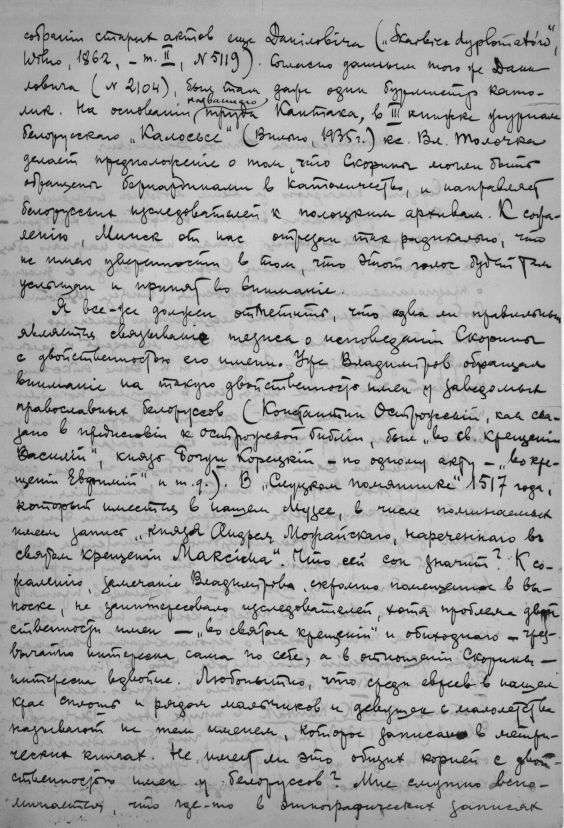 собраніи старых актов еще Даніловіча („Skarbiec dyplomatów",
Wilno, 1862, – т. II, N 5119). Согласно данным того же Дани
ловича (N 2104), был там даже один бурмистр като-
лик. На основаніи названнаго труда Кантака, в III книжке журнала
белорусскаго „Калосьсе" (Вильно, 1935 г.) кс. Вл. Толочка
делает предположеніе о том, что Скорины могли быть
обращены бернардинами в католичество, и направляет
белорусских изследователей к полоцким архивам. К сожа-
лению, Минск от нас отрезан так радикально, что
не имею уверенности в том, что этот голос будет там
услышан и принят во внимание.
Я все-же должен отметить, что едва ли правильным
является связывание тезиса о исповедании Скорины
с двойственностью его имени. Уже Владимиров обращал
внимание на такую двойственность имен у заведомых
православных белоруссов (Константин Острожскій, как ска-
зано в предисловіи к острожской библіи, был „во св. крещеніи
Василій", князь Богуш Корецкій – по одному акту – „во кре-
щеніи Евфимій" и т.д.). В „Слуцком помяннике" 1517 года,
который имеется в нашем Музее, в числе поминаемых
имеем запись „князя Андрея Можайскаго, нареченнаго въ
святом крещеніи Максіма". Что сей сон значит? К со-
жалению, замечание Владимирова, скромно помещенное в вы-
носке, не заинтересовало изследователей, хотя проблема двой
ственности имен – „во святом крещеніи" и обиходнаго – чрез-
вычайно интересна сама по себе, а в отношеніи Скорины –
интересна вдвойне. Любопытно, что среди евреев в нашем
крае сплошь и рядом мальчиков и девушек в малолетстве
называют не тем именем, которое записано в метри-
ческих книгах. Не имеет ли это общих корней с двой-
ственностью имен у белоруссов? Мне смутно вспо-
минается, что где-то в этнографических записях